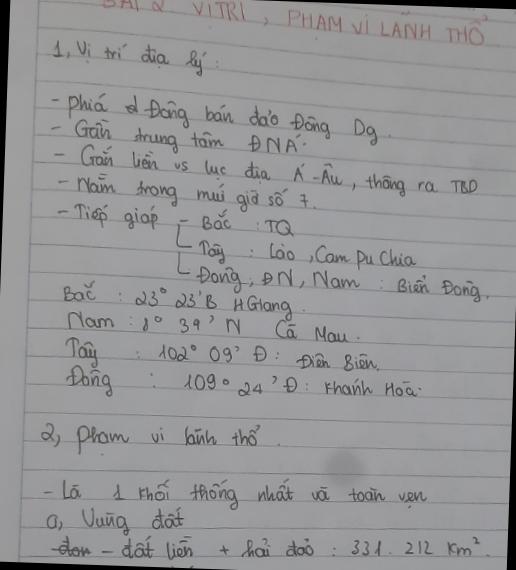 BÀI 2 VỊ TRÍ, PHẠM VI LÃNH THỔ
1, Vị trí địa lý:
- Phiá Đông bán đảo Đông Dg.
- Gần trung tâm ĐNÁ.
- Gắn liền vs lục địa Á-Âu, thông ra TBD
- Nằm trong múi giờ số 7.
- Tiếp giáp - Bắc : TQ
Tây : Lào, Cam pu chia
Đông, ĐN, Nam : Biển Đông.
Bắc : 23° 23'B HGiang.
Nam : 8° 39' N Cà Mau.
Tây : 102° 09' Đ : Điện Biên.
Đông : 109° 24' Đ : Khánh Hoà.
2, phạm vi lãnh thổ.
- Là 1 khối thống nhất và toàn vẹn
a, Vùng đất
- đất liền + hải đảo : 331. 212 Km².